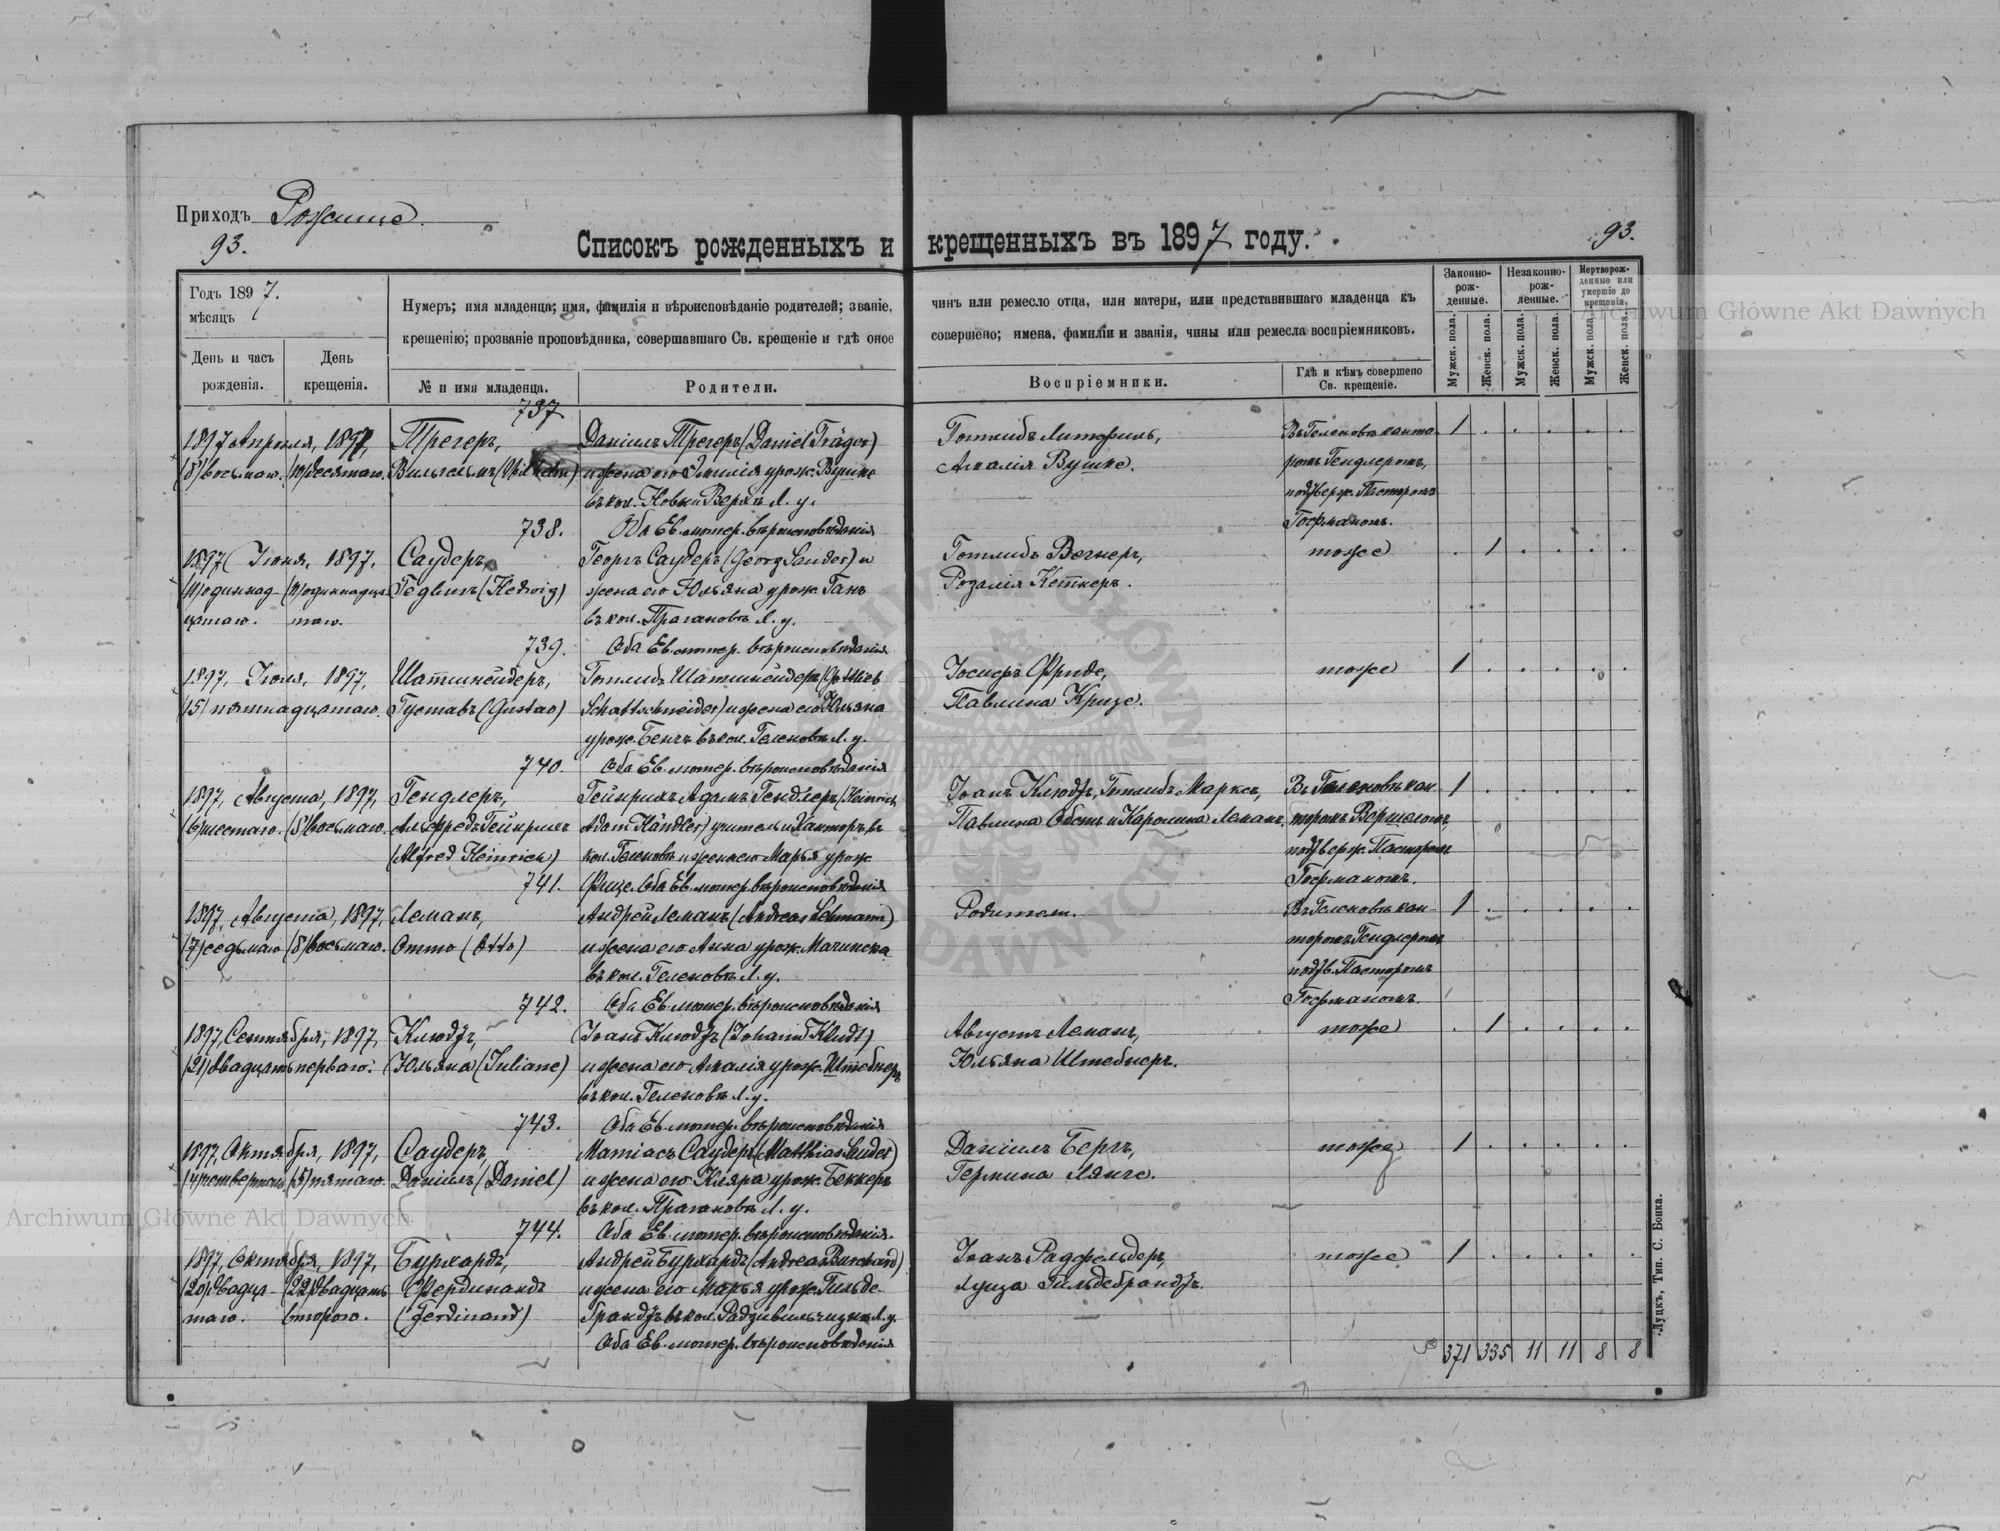 Приходъ Рожище.
93.
93.
Списокъ рожденныхъ и крещенныхъ въ 1897 году.
Годъ 1897.
мѣсяцъ
Нумеръ; имя младенца; имя, фамилія и вѣроисповѣданіе родителей; званіе,
чинъ или ремесло отца, или матери, или представившаго младенца къ
крещенію; прозваніе проповѣдника, совершавшаго Св. крещеніе и гдѣ оное
совершено; имена, фамиліи и званія, чины или ремесла воспріемниковъ.
Законно-
рож-
денные.
Незаконно-
рож-
денные.
Мертворож-
денные или
умершіе до
крещенія.
День и часъ
рожденія.
День
крещенія.
№ и имя младенца.
Родители.
Воспріемники.
Гдѣ и кѣмъ совершено
Св. крещеніе.
Мужск. пола.
Женск. пола.
Мужск. пола.
Женск. пола.
Мужск. пола.
Женск. пола.
737
1897 Апрѣля, 1897,
(8) восьмаго. (10) десятаго.
Трегеръ,
Вильгельмъ (Wilhelm)
Даніилъ Трегеръ (Daniel Träger)
и жена его Эмилія урож. Вушке
въ кол. Новый Верхъ Л. у.
Оба Ев. лютер. вѣроисповѣданія
Готлибъ Литфинъ,
Амалія Вушке.
Въ Геленовѣканто-
ромъ Гендлеромъ,
подтверж. Пасторомъ
Гофманомъ.
1
738.
1897 Іюня, 1897,
(11) одиннад- (11) одиннадца-
цатаго. таго.
Саудеръ,
Гедвигъ (Hedwig)
Георгъ Саудеръ (Georg Sauder) и
жена его Юльяна урож. Ганъ
въ кол. Прагановъ Л. у.
Оба Ев. лютер. вѣроисповѣданія
Готлибъ Вегнеръ,
Розалія Кетнеръ.
тоже
1
739.
1897, Іюля, 1897,
15/ пятнадцатаго.
Шатшнейдеръ,
Густавъ (Gustav)
Готлибъ Шатшнейдеръ (Gottlieb
Schattschneider) и жена его Юльяна
урож. Бенчъ въ кол. Геленовъ Л. у.
Оба Ев. лютер. вѣроисповѣданія
Іосифъ Фриде,
Павлина Кризе.
тоже
1
740.
1897, Августа, 1897,
(6) шестаго. (8) восьмаго.
Гендлеръ,
Альфредъ Гейнрихъ
(Alfred Heinrich)
Гейнрихъ Адамъ Гендлеръ (Heinrich
Adam Händler) учитель и Канторъ въ
кол. Геленовъ и жена его Марья урож
Фице. Оба Ев. лютер. вѣроисповѣданія
Іоанъ Клюдтъ, Готлибъ Марксъ,
Павлина Обстъ и Каролина Леманъ.
Въ Геленовѣ кан-
торомъ Вершегомъ,
подтверж. Пасторомъ
Гофманомъ.
1
741.
1897, Августа, 1897,
(7) седьмаго (8) восьмаго.
Леманъ,
Отто (Otto)
Андрей Леманъ (Andreas Lehmann)
и жена его Анна урож. Мачинска
въ кол. Геленовъ Л. у.
Оба Ев. лютер. вѣроисповѣданія
Родители.
Въ Геленовѣ кан-
торомъ Гендлеромъ
подтв. Пасторомъ
Гофманомъ.
1
742.
1897, Сентября, 1897,
(21) двадцать перваго.
Клюдтъ,
Юльяна (Juliane)
Іоанъ Клюдтъ (Johann Kludt)
и жена его Амалія урож. Штебнеръ
въ кол. Геленовъ Л. у.
Оба Ев. лютер. вѣроисповѣданія
Августъ Леманъ,
Юльяна Штебнеръ.
тоже
1
743.
1897, Октября, 1897,
(4) четвертаго (5) пятаго.
Саудеръ,
Даніилъ (Daniel)
Матіасъ Саудеръ (Matthias Sauder)
и жена его Клара урож. Беккеръ
въ кол. Прагановъ Л. у.
Оба Ев. лютер. вѣроисповѣданія.
Даніилъ Бергъ,
Гермина Лянге.
тоже
1
744.
1897, Октября, 1897,
(20) двадца- (22) двадцать
таго. втораго.
Бурхардъ,
Фердинандъ
(Ferdinand)
Андрей Бурхардъ (Andreas Burchard)
и жена его Марья урож. Гильде-
брандтъ въ кол. Радзивильчизна Л. у.
Оба Ев. лютер. вѣроисповѣданія
Іоанъ Радфельдеръ,
Луиза Гильдебрандтъ.
тоже
1
371 335 11 11 8 8
Луцкъ, Тип. С. Бонка.
Archiwum Główne Akt Dawnych
Archiwum Główne Akt Dawnych